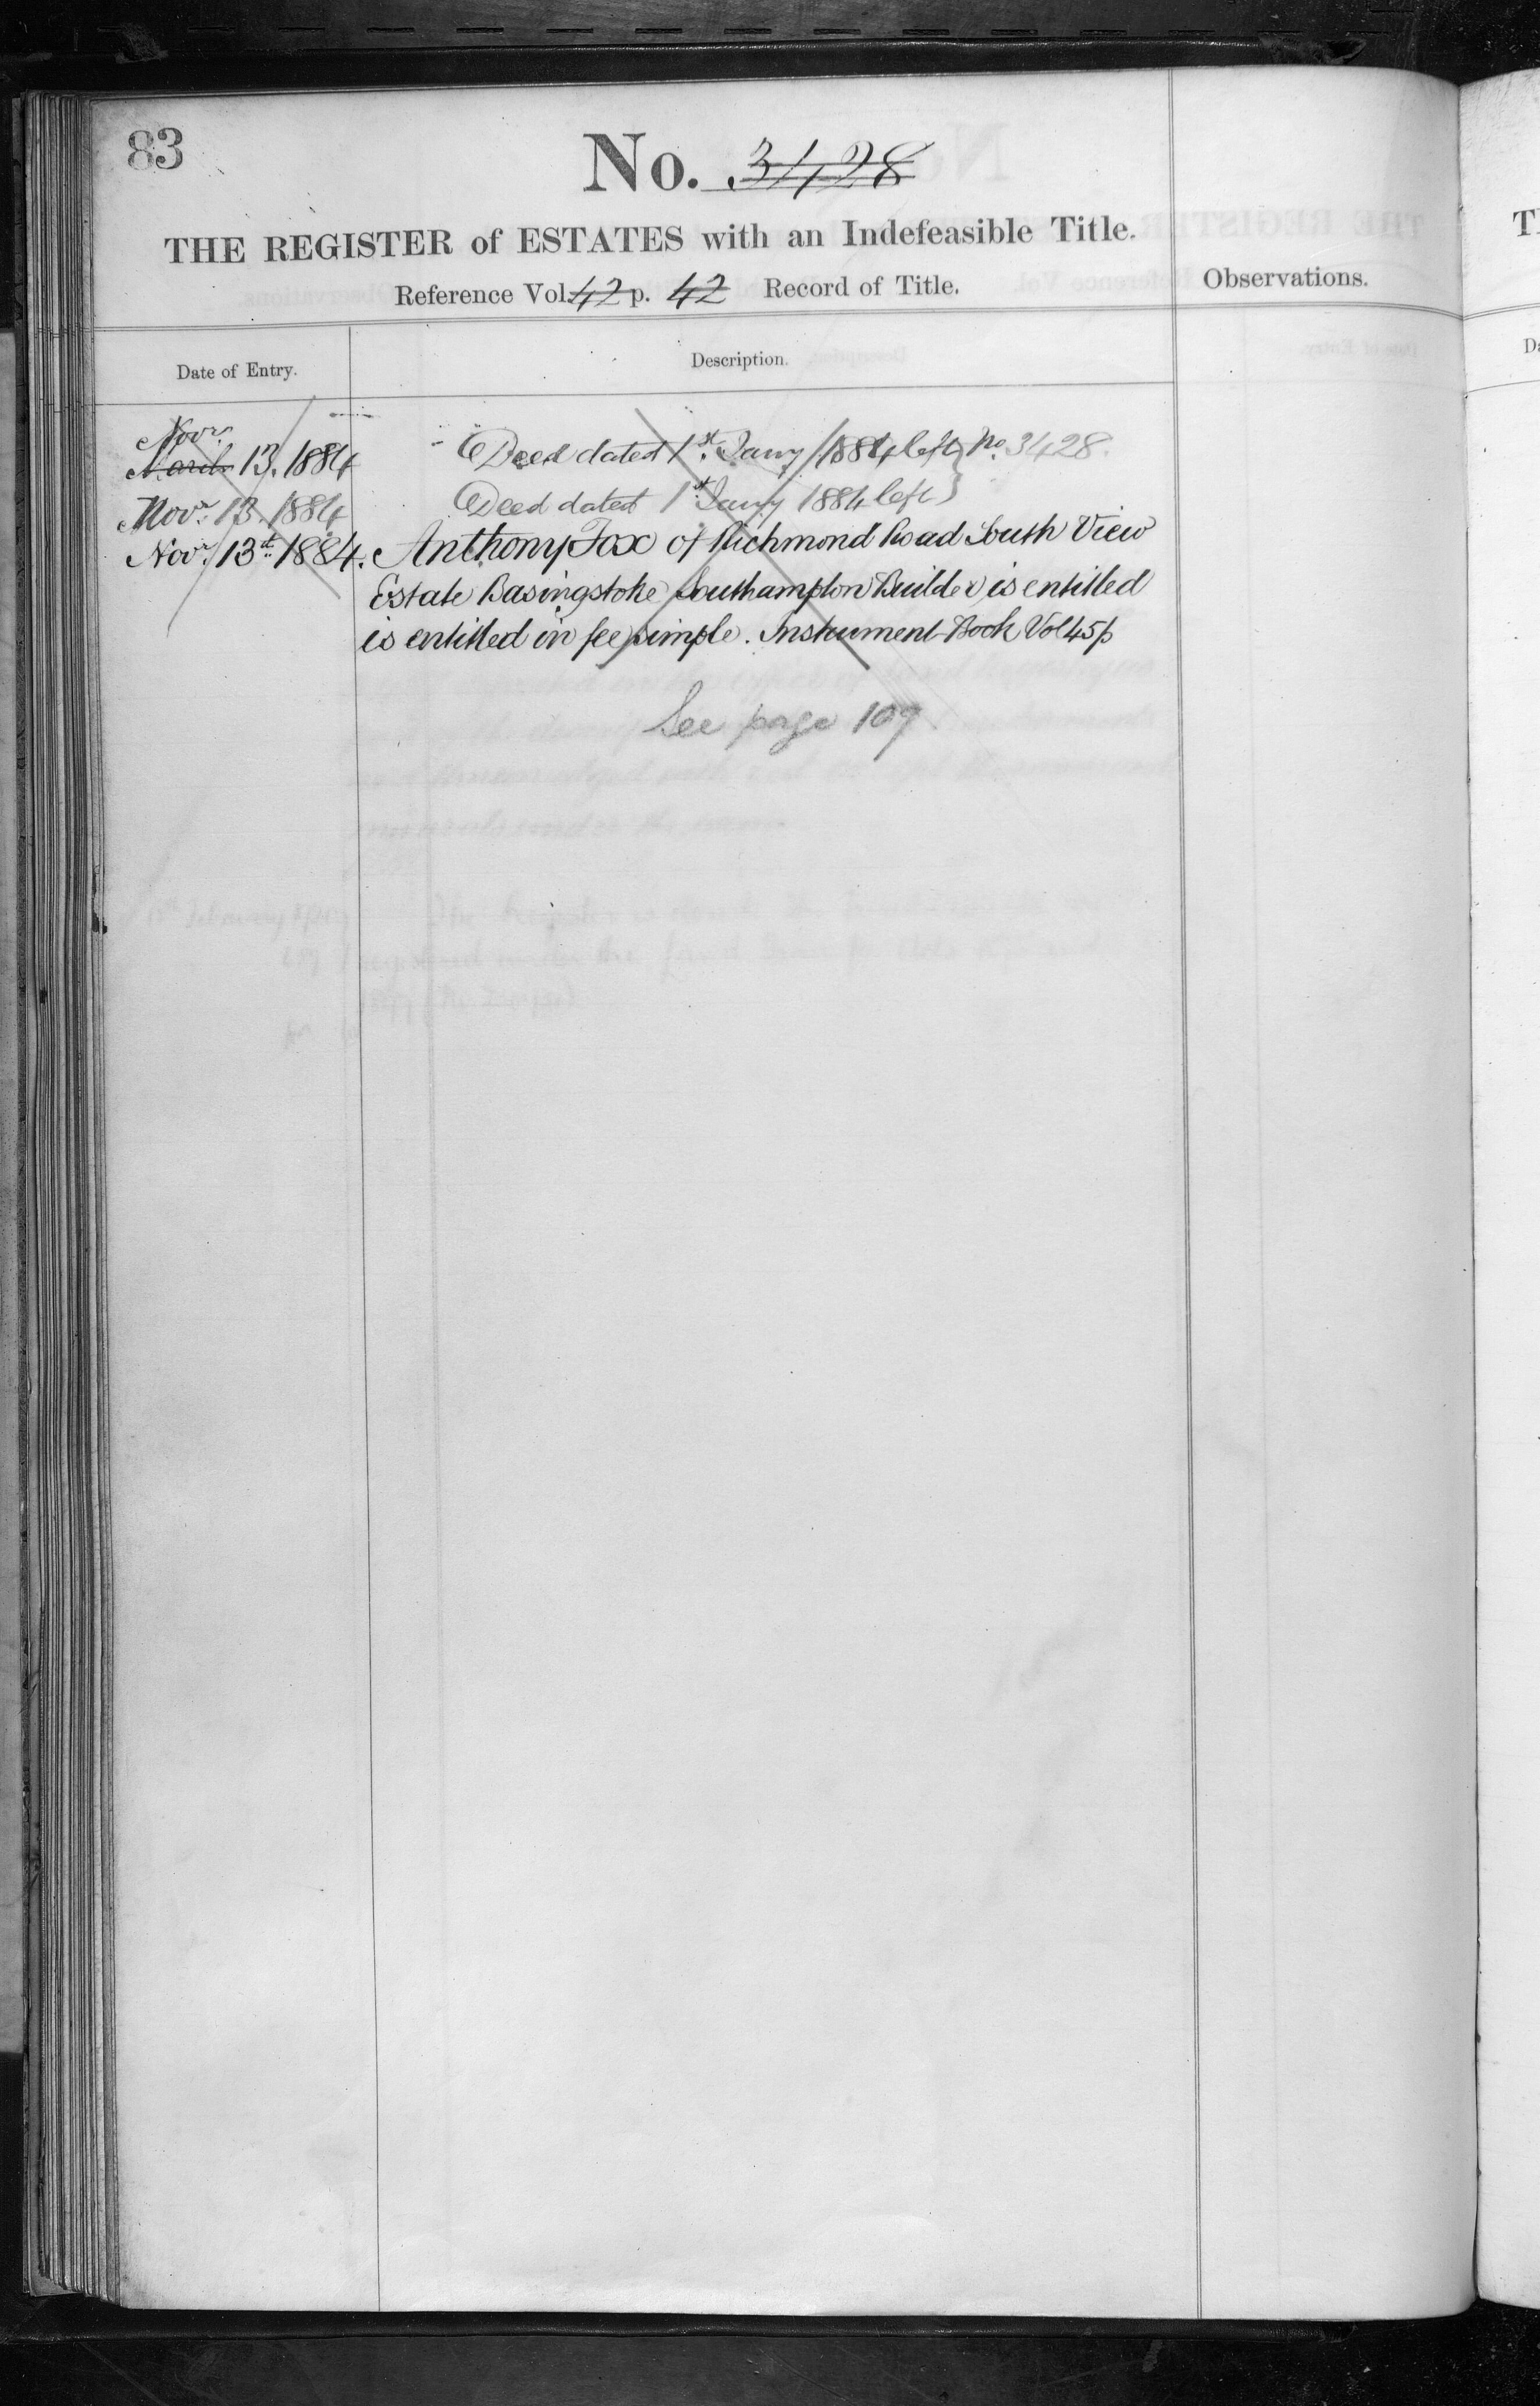 83
No. 3428
THE REGISTER of ESTATES with an Indefeasible Title.
Reference Vol. 42 p. 42 Record of Title.
Observations.
Date of Entry.
Description.
Novr.
March 13. 1884 Deed dated 1st. Jany 1884 left } No. 3428.
Novr. 13. 1884 Deed dated 1st Jany 1884 left }
Novr. 13th 1884. Anthony Fox of Richmond Road South View
Estate Basingstoke Southampton Builder is entitled
is entitled in fee simple. Instrument Book Vol 45 p
See page 109